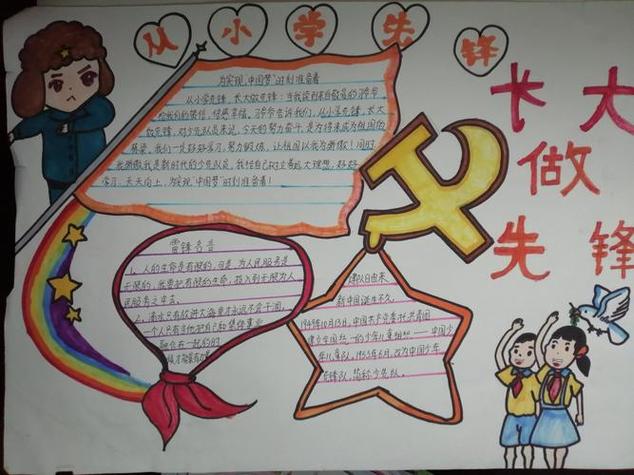 从小学先锋
长大
做
先锋
为实现"中国梦"时刻准备着
从小学先锋，长大做先锋；当我读到来自敬爱的习爷爷
的信，倍感幸福。习爷爷告诉我们，从小学先锋，长大
做先锋，对少先队员来说，今天的努力奋斗，是为将来成为祖国的
栋梁，我们一定好好学习，努力锻炼，让祖国以我为骄傲！同时
我骄傲我是新时代的少先队员，我任自己树立高远大理想，好好
学习，天天向上，为实现"中国梦"时刻准备着！
雷锋名言
1、人的生命是有限的，可是，为人民服务是
无限的，我要把有限的生命，投入到无限为人
民服务之中去。
2、滴水只有放进大海里才永远不会干涸，
一个人只有当他把自己和集体事业
融合在一起的时
才能最有力量
建队日由来
新中国诞生不久，
1949年10月13日，中国共产党委托共青团
建立全国统一的少年儿童组织——中国少
年儿童队，1953年6月，改为中国少年
先锋队，简称少先队。